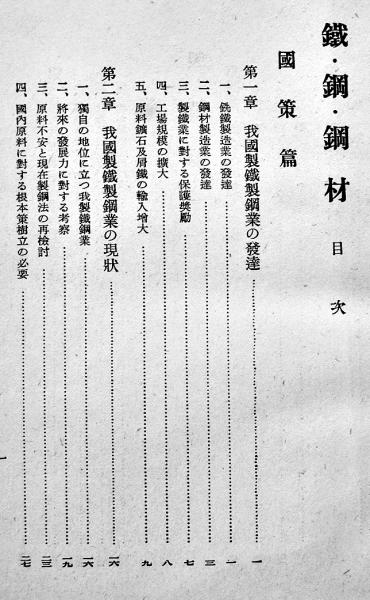 鐵・鋼・鋼材 目次
國策篇
第一章 我國製鐵製鋼業の發達……一
一、銑鐵製造業の發達……一
二、鋼材製造業の發達……三
三、製鐵業に對する保護奬勵……七
四、工場規模の擴大……八
五、原料鑛石及屑鐵の輸入增大……九
第二章 我國製鐵製鋼業の現狀……一六
一、獨自の地位に立つ我製鐵鋼業……一六
二、將來の發展力に對する考察……一九
三、原料不安と現在製鋼法の再檢討……二三
四、國內原料に對する根本策樹立の必要……二七